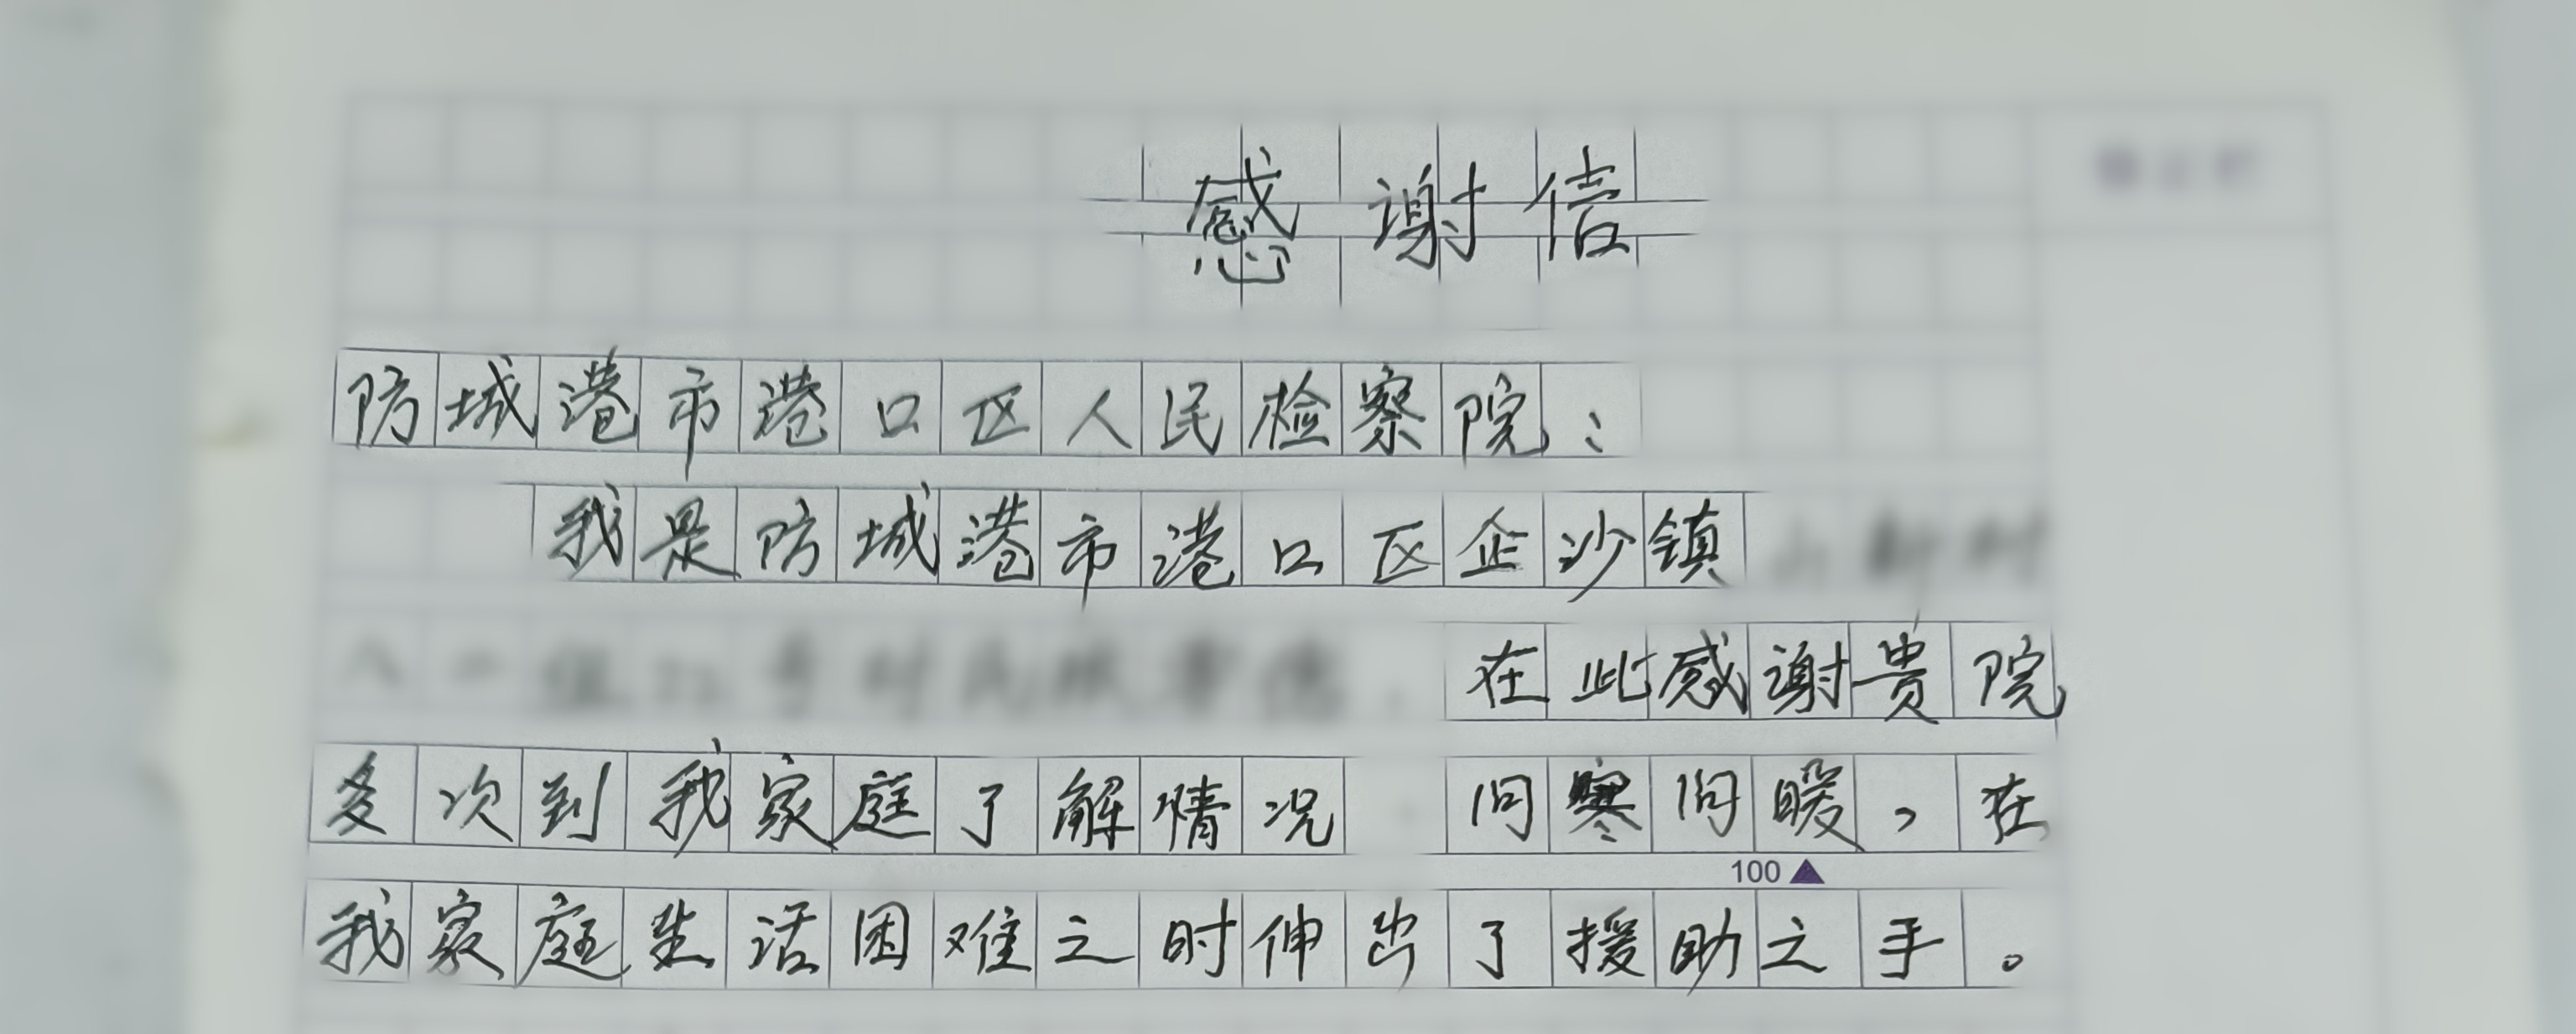 感谢信
防城港市港口区人民检察院：
我是防城港市港口区企沙镇
在此感谢贵院
多次到我家庭了解情况 问寒问暖，在
100
我家庭生活困难之时伸出了援助之手。